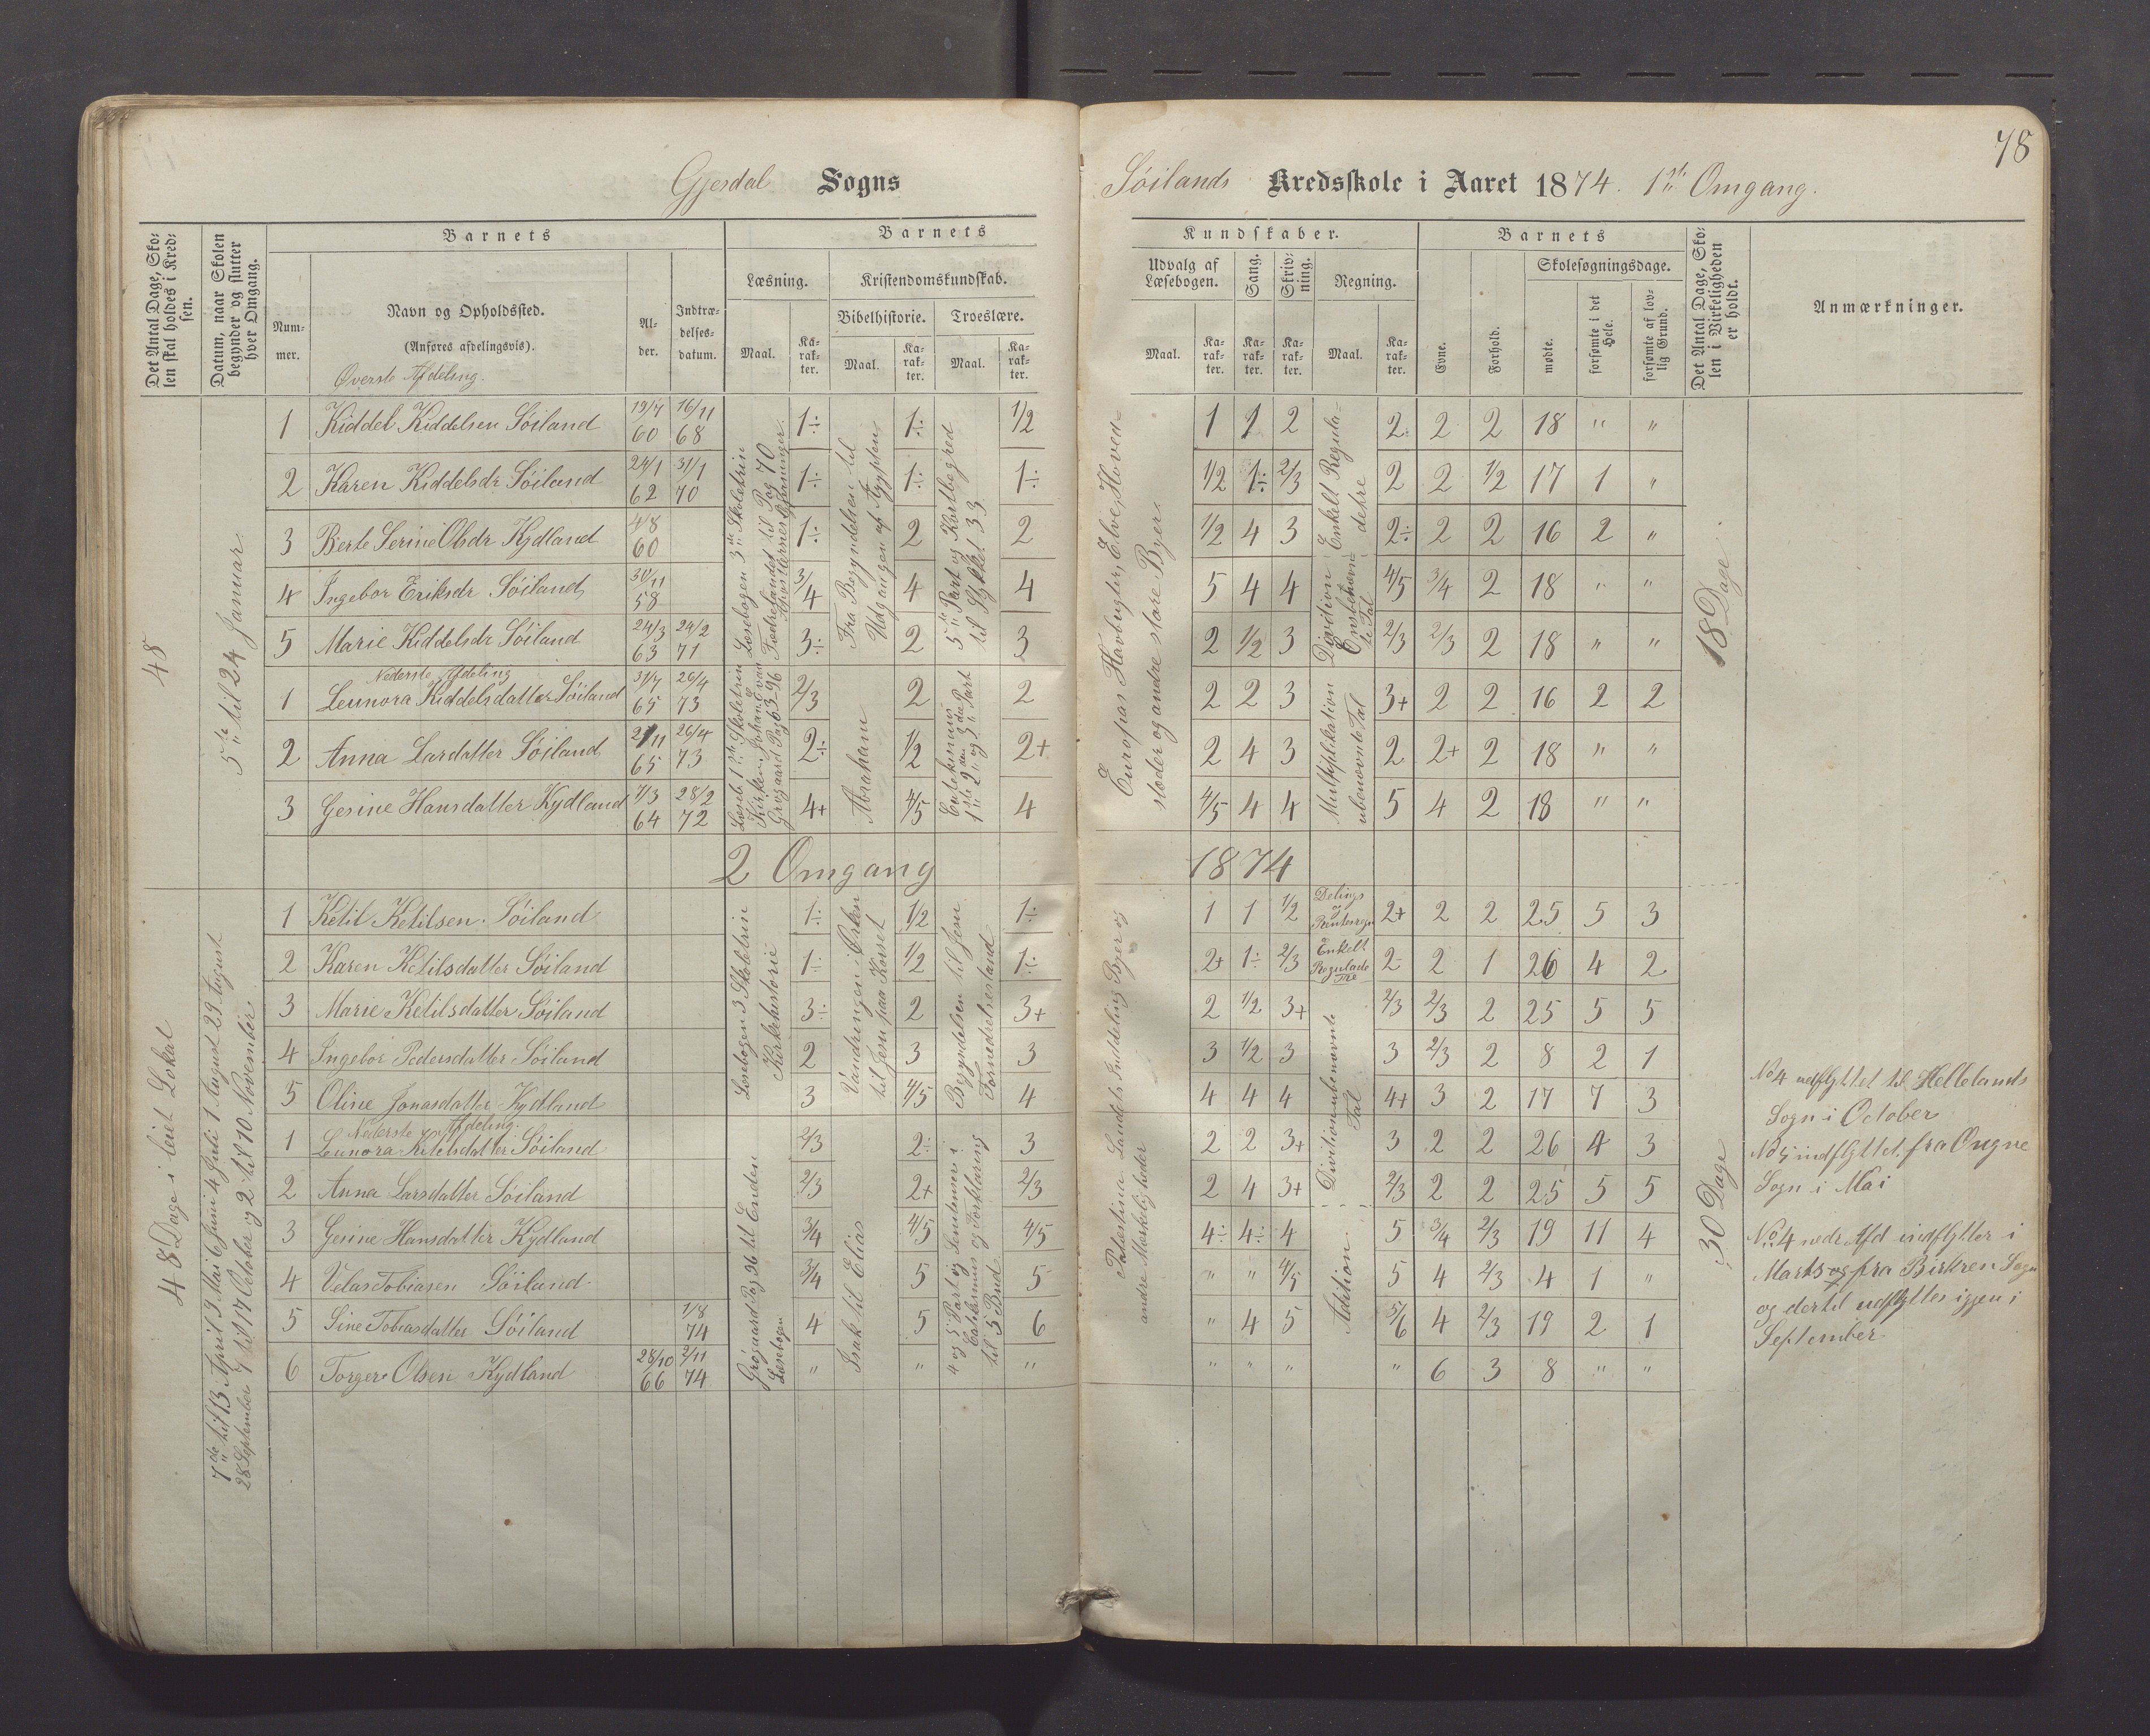 78
Gjesdal Sogns
Søilands Kredsskole i Aaret 1874. 1ste Omgang.
Det Antal Dage, Skolen skal holdes i Kredsen.
Datum, naar Skolen begynder og slutter hver Omgang.
Barnets
Nummer.
Navn og Opholdssted.
(Anføres afdelingsvis).
Øverste Afdeling.
Alder.
Indtrædelsesdatum.
Barnets
Læsning.
Maal.
Karakter.
Kristendomskundskab.
Bibelhistorie.
Maal.
Karakter.
Troeslære.
Maal.
Karakter.
Kundskaber.
Udvalg af Læsebogen.
Maal.
Karakter.
Sang.
Karakter.
Skrivning.
Karakter.
Regning.
Maal.
Karakter.
Barnets
Evne.
Forhold.
Skolesøgningsdage.
mødte.
forsømte i det Hele.
forsømte af lovlig Grund.
Det Antal Dage, Skolen i Virkeligheden er holdt.
Anmærkninger.
48
5te til 24 Januar
Læsebogen 3die Skoletrin
Fædrelandet til Pag 70
Fra Begyndelsen til
Udgangen af Ægypten
5te Part og Kortbegreb
til Stykket 33
Europas Havbugter, Elve, Hoved=
stæder og andre store Byer.
Enkelt Regula=
detre
Division Ensbenævn
te Tal
18 Dage
1 Kiddel Kiddelsen Søiland 19/7 60 16/11 68 1÷ 1÷ 1/2 1 1 2 2 2 2 18 " "
2 Karen Kiddelsdr Søiland 24/1 62 31/1 70 1÷ 1÷ 1÷ 1/2 1÷ 2/3 2 2 1/2 17 1 "
3 Berte Serine Olsdr Kydland 4/8 60 1÷ 2 2 1/2 4 3 2÷ 2 2 16 2 "
4 Ingebor Eriksdr Søiland 30/11 58 3/4 4 4 5 4 4 4/5 3/4 2 18 " "
5 Marie Kiddelsdr Søiland 24/3 63 24/2 71 3÷ 2 3 2 1/2 3 2/3 2/3 2 18 " "
Nederste Afdeling
Læseb 1ste Skoletrin
Grøgaard Pag 63-96
Abraham
Multiplikation
ubenævnte Tal
1 Leunora Kiddelsdatter Søiland 31/7 65 26/4 73 2/3 2 2 2 2 3 3+ 2 2 16 2 2
2 Anna Larsdatter Søiland 21/11 65 26/4 73 2÷ 1/2 2+ 2 4 3 2 2+ 2 18 " "
3 Gesine Hansdatter Kydland 7/3 64 28/2 72 4+ 4/5 4 4/5 4 4 5 4 2 18 " "
2 Omgang 1874
48 Dage i leiet Lokal
7de til 13 April 9 Mai 6 Juni 4 Juli 1 August 29 August
28 September til 17 October og 2 til 10 November
Læsebogen 3 Skoletrin
Kirkehistorie
Vandringen i Ørken
til Jesu paa Korset
Begyndelsen til Jesu
Fornedrelsesstand
Palæstina Landets Inddeling Byer og
andre Mærkeligheder
Delings
og
Rentesregn
Enkelt
Regulade
Tre
Division ubenævnte
Tal
30 Dage
1 Ketil Ketilsen Søiland 1÷ 1/2 1÷ 1 1 1/2 2+ 2 2 25 5 3
2 Karen Ketilsdatter Søiland 1÷ 1/2 1÷ 2+ 1÷ 2/3 2- 2 1 26 4 2
3 Marie Ketilsdatter Søiland 3÷ 2 3+ 2 1/2 3+ 2/3 2/3 2 25 5 5
4 Ingebor Pedersdatter Søiland 2 3 3 3 1/2 3 3 2/3 2 8 2 1
5 Oline Jonasdatter Kydland 3 4/5 4 4 4 4 4+ 3 2 17 7 3
Nederste Afdeling
Grøgaard Pag 96 til Enden
Læsebogen
Isak til Elias
4 og 5 Part og Sententsen i
Catekismus og Forklaring
til 5 Bud
Adition
1 Leunora Ketilsdatter Søiland 2/3 2÷ 3 2 2 3+ 3 2 2 26 4 3
2 Anna Larsdatter Søiland 2/3 2+ 2/3 2 4 3+ 2/3 2 2 25 5 5
3 Gesine Hansdatter Kydland 3/4 4/5 4/5 4÷ 4÷ 4 5 3/4 2/3 19 11 4
4 Velas Tobiasen Søiland 3/4 5 5 " " 4/5 5 4 2/3 4 1 "
5 Sine Tobiasdatter Søiland 1/8 74 4 5 6 " 4 5 5/6 4 2/3 19 2 1
6 Torger Olsen Kydland 28/10 66 2/11 74 " " " " " " " 6 3 8 " "
No 4 udflyttet til Hellelands
Sogn i October
No 5 indflyttet fra Ougne
Sogn i Mai
No 4 nedr Afd indflytter i
Marts og fra Birkren Sogn
og dertil udflyttes igjen i
September